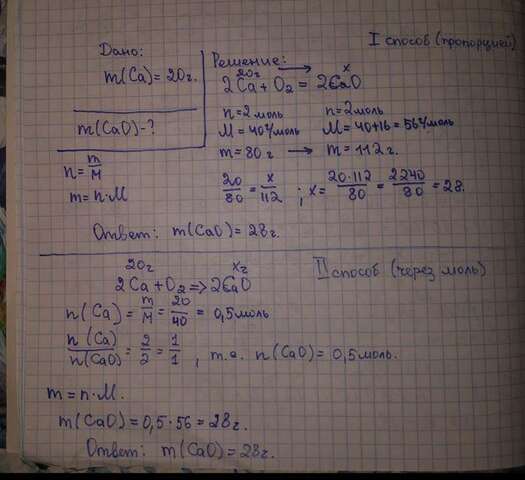 I способ (пропорцией)
Дано:
m(Ca) = 20г.
m(CaO) - ?
n = m/M
m = n·M
Решение:
20г x
2Ca + O₂ = 2CaO
n = 2 моль n = 2 моль
M = 40 г/моль M = 40+16 = 56 г/моль
m = 80 г → m = 112 г.
20/80 = x/112 ; x = 20·112/80 = 2240/80 = 28.
Ответ: m(CaO) = 28г.
II способ (через моль)
20г xг
2Ca + O₂ => 2CaO
n(Ca) = m/M = 20/40 = 0,5 моль
n(Ca)/n(CaO) = 2/2 = 1/1 , т.е. n(CaO) = 0,5 моль.
m = n·M.
m(CaO) = 0,5·56 = 28г.
Ответ: m(CaO) = 28г.